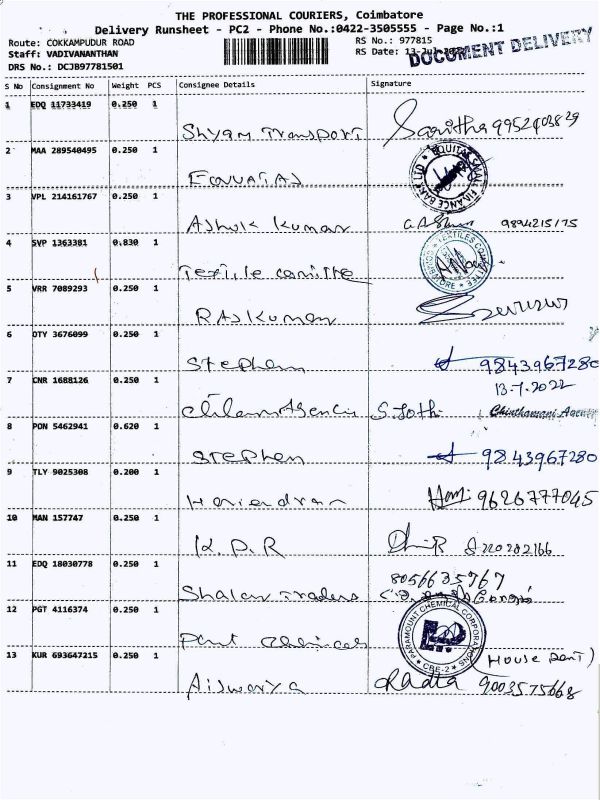 THE PROFESSIONAL COURIERS, Coimbatore
Delivery Runsheet - PC2 - Phone No.:0422-3505555 - Page No.:1
Route: COKKAMPUDUR ROAD
RS No.: 977815
Staff: VADIVANANTHAN
RS Date: 13-Jul-
DOCUMENT DELIVERY
DRS No.: DCJB97781501
S No Consignment No Weight PCS Consignee Details Signature
1 EDQ 11733419 0.250 1
Shyam Transport Sanitha 9952402829
2 MAA 289540495 0.250 1
EQUITAS SMALL FINANCE BANK LTD
3 VPL 214161767 0.250 1
Ashok Kumar
4 SVP 1363381 0.830 1
Textile
5 VRR 7089293 0.250 1
RAJKUMAR
6 OTY 3676099 0.250 1
Stephen 9843967280
13-7-2022
7 CNR 1688126 0.250 1
S. Jothi Chinthamani
8 PON 5462941 0.620 1
Stephen 9843967280
9 TLY 9025308 0.200 1
Harendran 9626777045
10 MAN 157747 0.250 1
K.P.R
11 EDQ 18030778 0.250 1
8056635767
Traders
12 PGT 4116374 0.250 1
PARAMOUNT CHEMICAL CORPORATIONS
CBE-2
13 KUR 693647215 0.250 1
Aiswarya Radha 9003575668